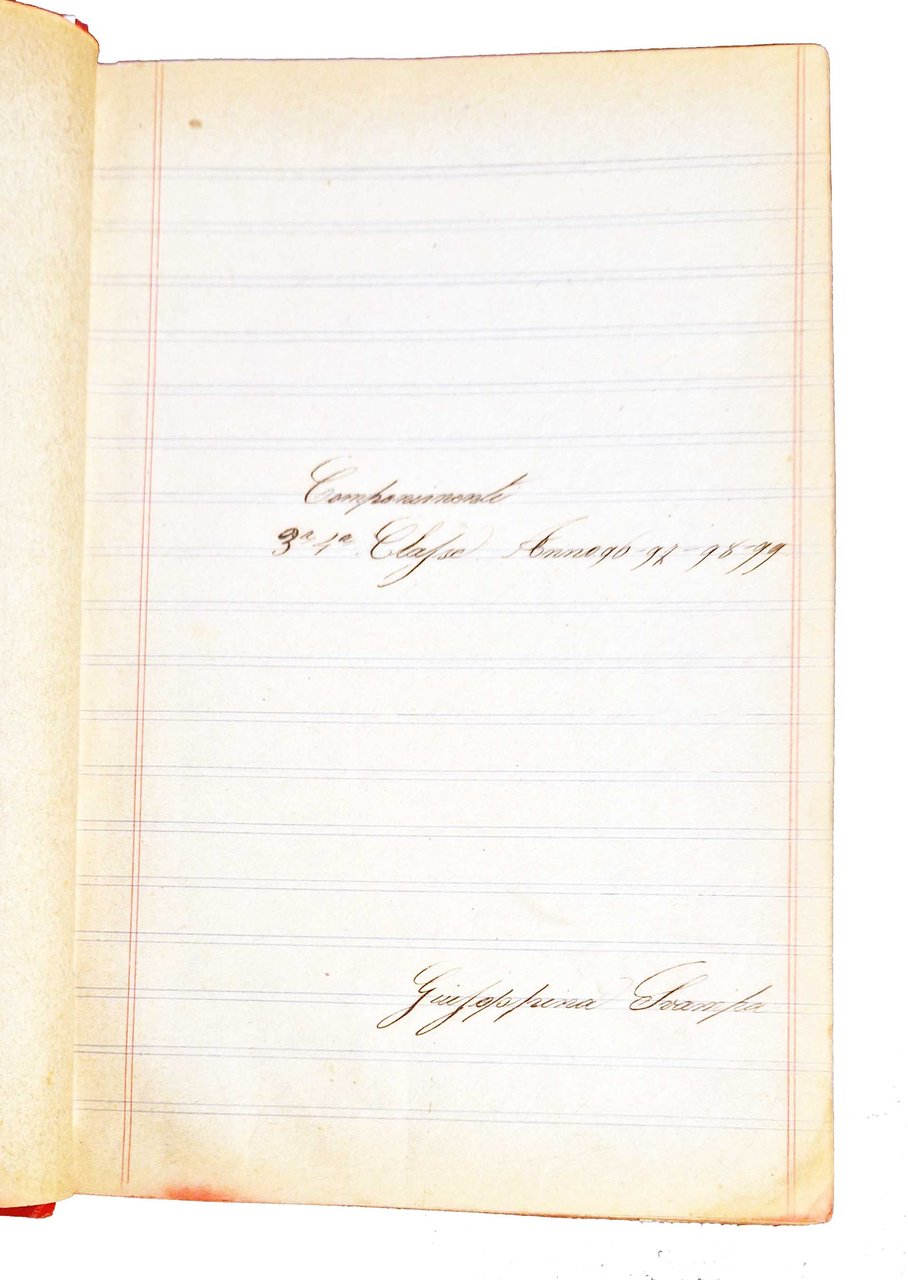 Componimenti
3ª 4ª Classe Anno 96-97-98-99
Giuseppina Svampa